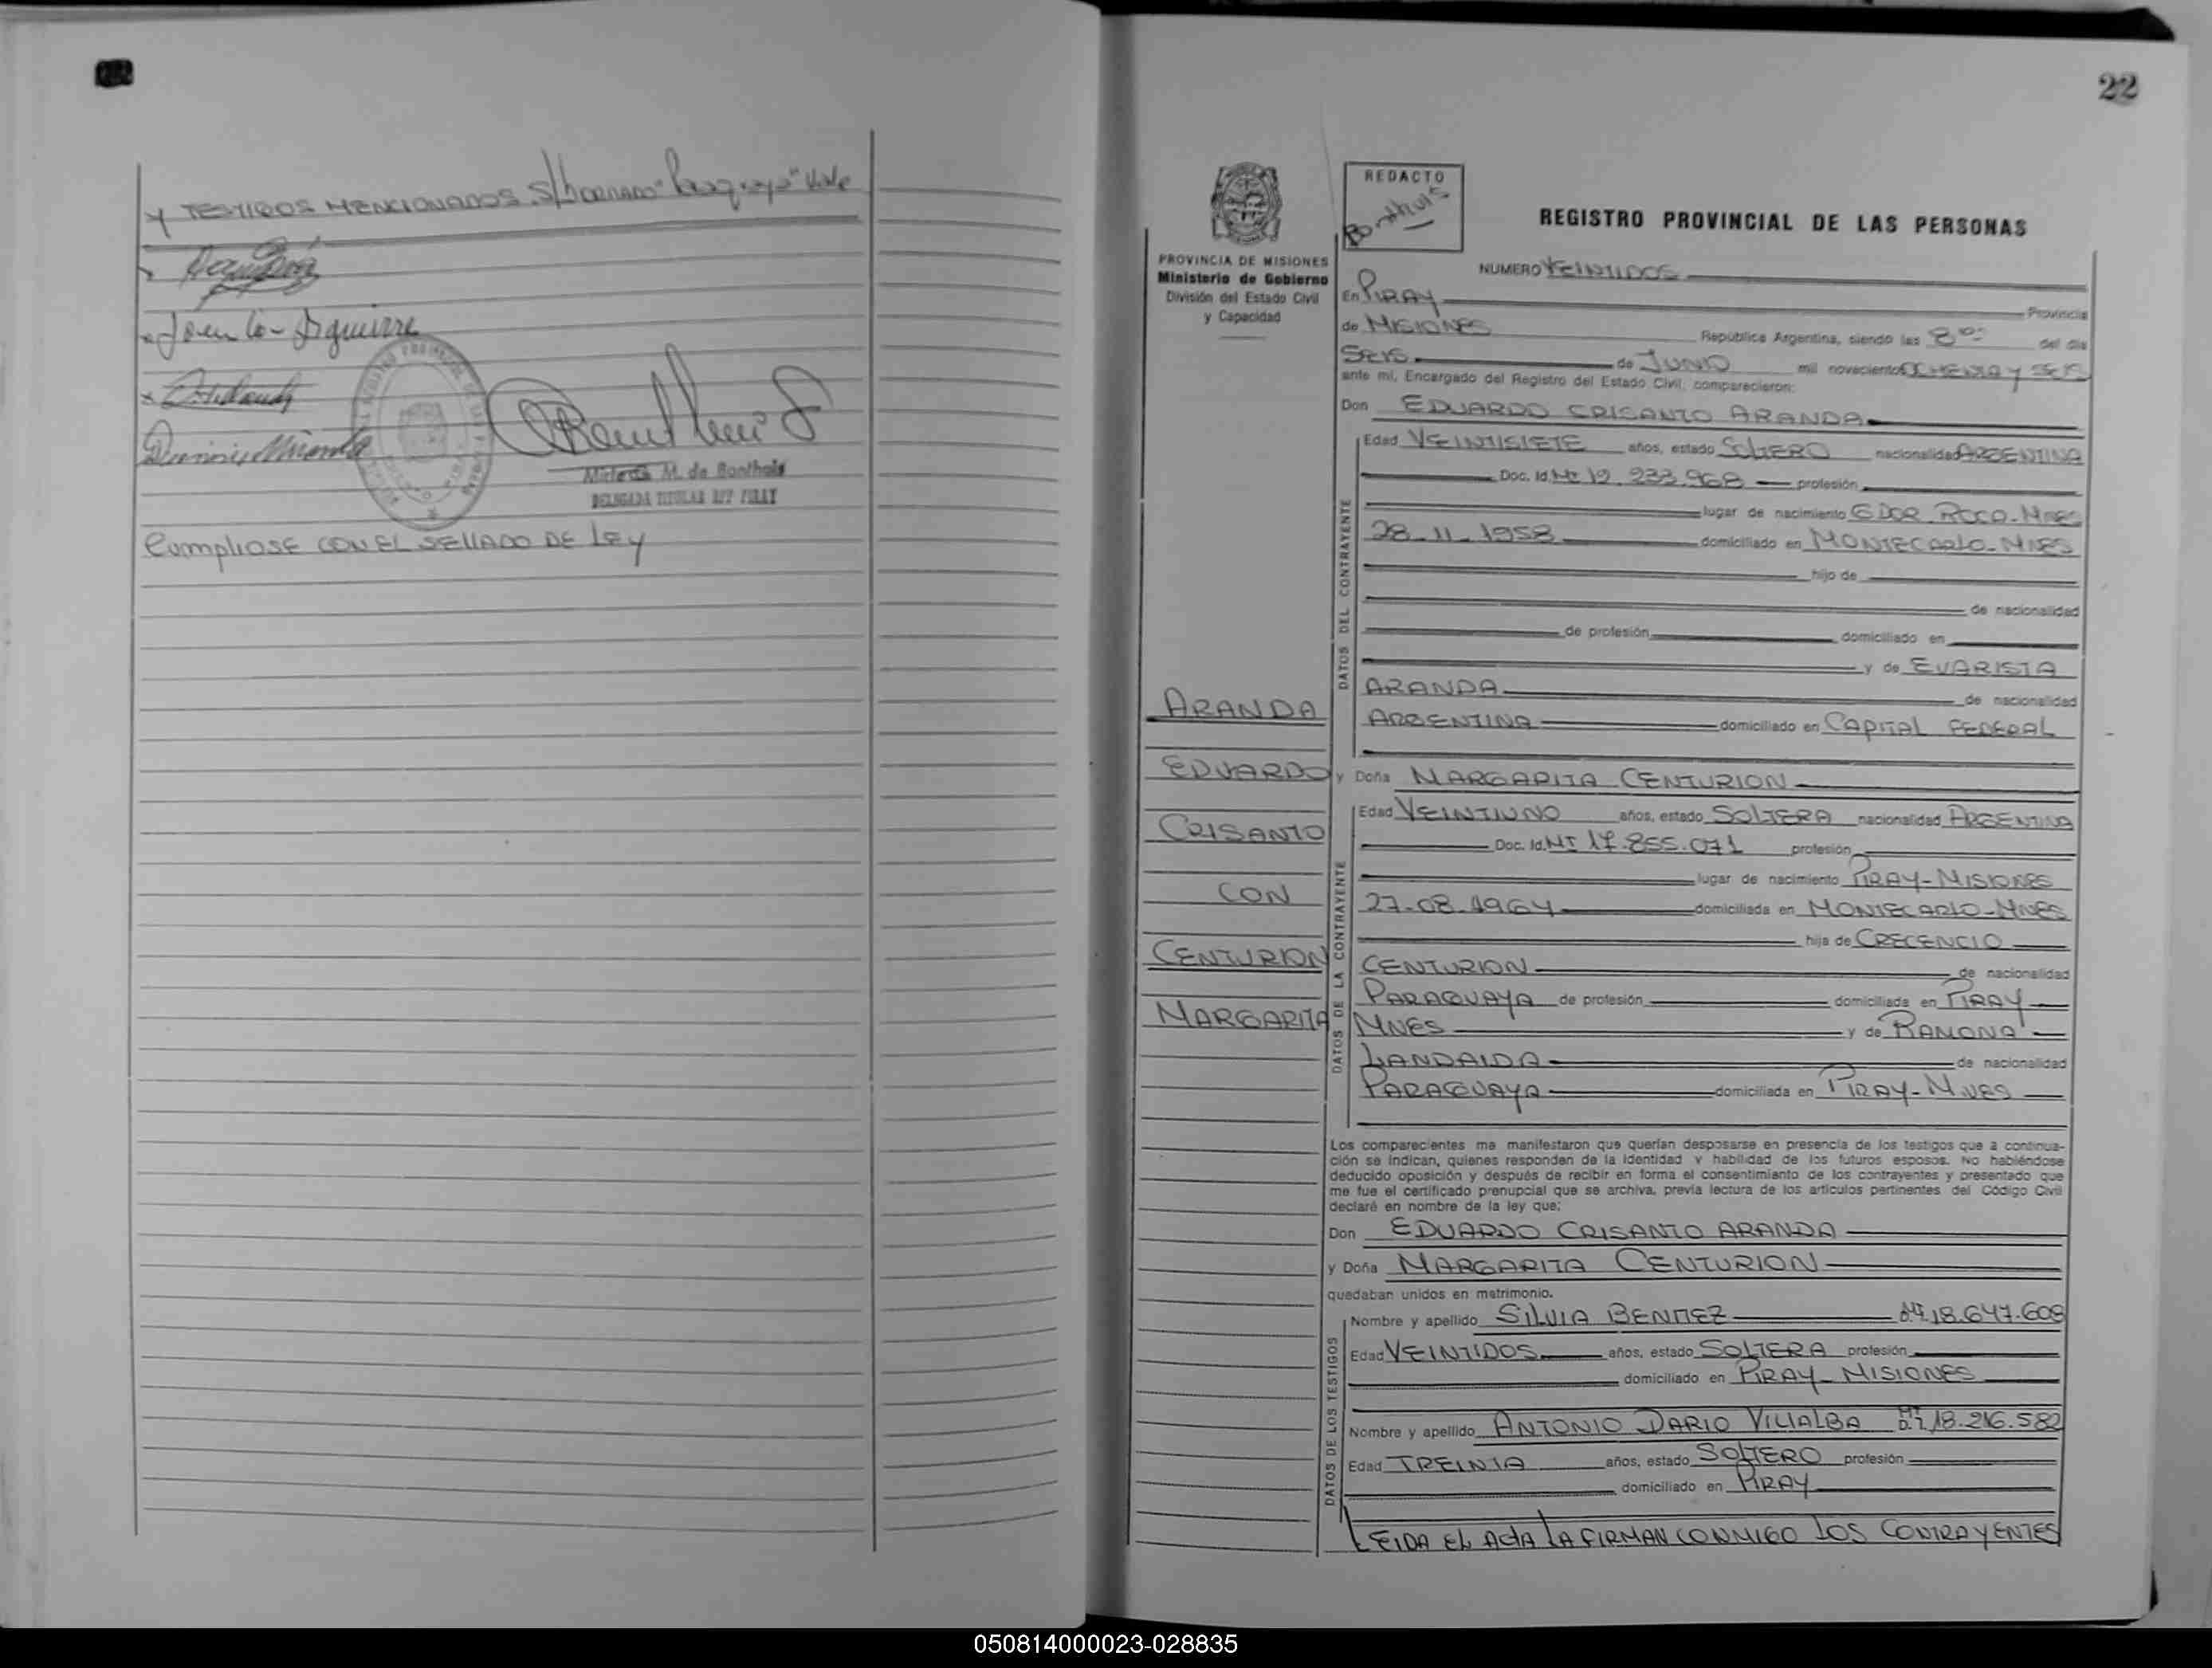 Y TESTIGOS MENCIONADOS. S/borrado "Paraguaya" Vale
Aguirre
Mirleda M. de Bonthuis
DELEGADA TITULAR RPP PIRAY
Cumpliose CON EL SELLADO DE LEY
22
REDACTO
Bonthuis
REGISTRO PROVINCIAL DE LAS PERSONAS
PROVINCIA DE MISIONES
Ministerio de Gobierno
División del Estado Civil
y Capacidad
NUMERO VEINTIDOS
En PIRAY Provincia
de MISIONES República Argentina, siendo las 8 00 del día
SEIS de JUNIO mil novecientos OCHENTA Y SEIS
ante mí, Encargado del Registro del Estado Civil, comparecieron:
Don EDUARDO CRISANTO ARANDA
DATOS DEL CONTRAYENTE
Edad VEINTISIETE años, estado SOLTERO nacionalidad ARGENTINA
Doc. Id. MI 12.233.968 profesión
lugar de nacimiento GDOR ROCA-MNES
28-11-1958 domiciliado en MONTECARLO-MNES
hijo de
de nacionalidad
de profesión domiciliado en
y de EVARISTA
ARANDA de nacionalidad
ARGENTINA domiciliado en CAPITAL FEDERAL
ARANDA
EDUARDO
CRISANTO
CON
CENTURION
MARGARITA
y Doña MARGARITA CENTURION
DATOS DE LA CONTRAYENTE
Edad VEINTIUNO años, estado SOLTERA nacionalidad ARGENTINA
Doc. Id. MI 17.855.071 profesión
lugar de nacimiento PIRAY-MISIONES
27-08-1964 domiciliada en MONTECARLO-MNES
hija de CRECENCIO
CENTURION de nacionalidad
PARAGUAYA de profesión domiciliada en PIRAY
MNES y de RAMONA
LANDAIDA de nacionalidad
PARAGUAYA domiciliada en PIRAY-MNES
Los comparecientes me manifestaron que querían desposarse en presencia de los testigos que a continua-
ción se indican, quienes responden de la identidad y habilidad de los futuros esposos. No habiéndose
deducido oposición y después de recibir en forma el consentimiento de los contrayentes y presentado que
me fue el certificado prenupcial que se archiva, previa lectura de los artículos pertinentes del Código Civil
declaré en nombre de la ley que:
Don EDUARDO CRISANTO ARANDA
y Doña MARGARITA CENTURION
quedaban unidos en matrimonio.
DATOS DE LOS TESTIGOS
Nombre y apellido SILVIA BENITEZ 18.647.608
Edad VEINTIDOS años, estado SOLTERA profesión
domiciliado en PIRAY-MISIONES
Nombre y apellido ANTONIO DARIO VILLALBA 18.216.582
Edad TREINTA años, estado SOLTERO profesión
domiciliado en PIRAY
LEIDA EL ACTA LA FIRMAN CONMIGO LOS CONTRAYENTES
050814000023-028835